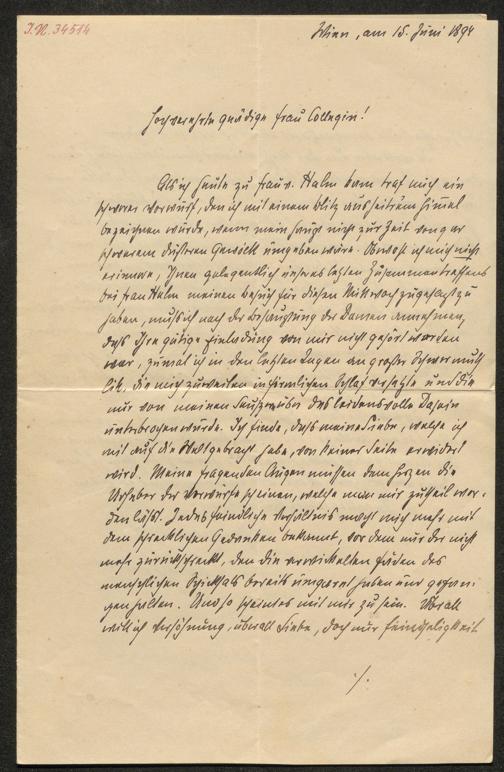 I.N. 34514
Wien, am 15. Juni 1894
Hochverehrte gnädige Frau Collegin!
Als ich heute zu Frau v. Halm kam traf mich ein
schwerer Vorwurf, den ich mit einem Blitz aus heiterem Himmel
bezeichnen würde, wenn mein Haupt nicht zur Zeit von gar
schwerem düsteren Gewölk umgeben wäre. Obwohl ich mich nicht
erinnere, Ihnen gelegentlich unseres letzten Zusammentreffens
bei Frau Halm meinen Besuch für diesen Mittwoch zugesagt zu
haben, muß ich nach der Behauptung der Damen annehmen,
daß Ihre gütige Einladung von mir nicht gehört worden
war, zumal ich in den letzten Tagen an großer Schwermuth
litt, die mich zuweilen in förmlichen Schlaf versetzte und die
nur von meinen Seufzern über das leidensvolle Dasein
unterbrochen wurde. Ich finde, daß meine Liebe, welche ich
mit auf die Welt gebracht habe, von keiner Seite erwidert
wird. Meine fragenden Augen müssen dem Herzen die
Urheber der Vorwürfe scheinen, welche man mir zutheil wer-
den läßt. Jedes feindliche Verhältnis macht mich mehr mit
dem schrecklichen Gedanken bekannt, vor dem nur der nicht
mehr zurückschreckt, den die verwickelten Fäden des
menschlichen Schicksals bereits umgarnt haben und gefan-
gen halten. Und so scheint es mit mir zu sein. Überall
will ich Versöhnung, überall Liebe, doch nur Feindseligkeit
./.